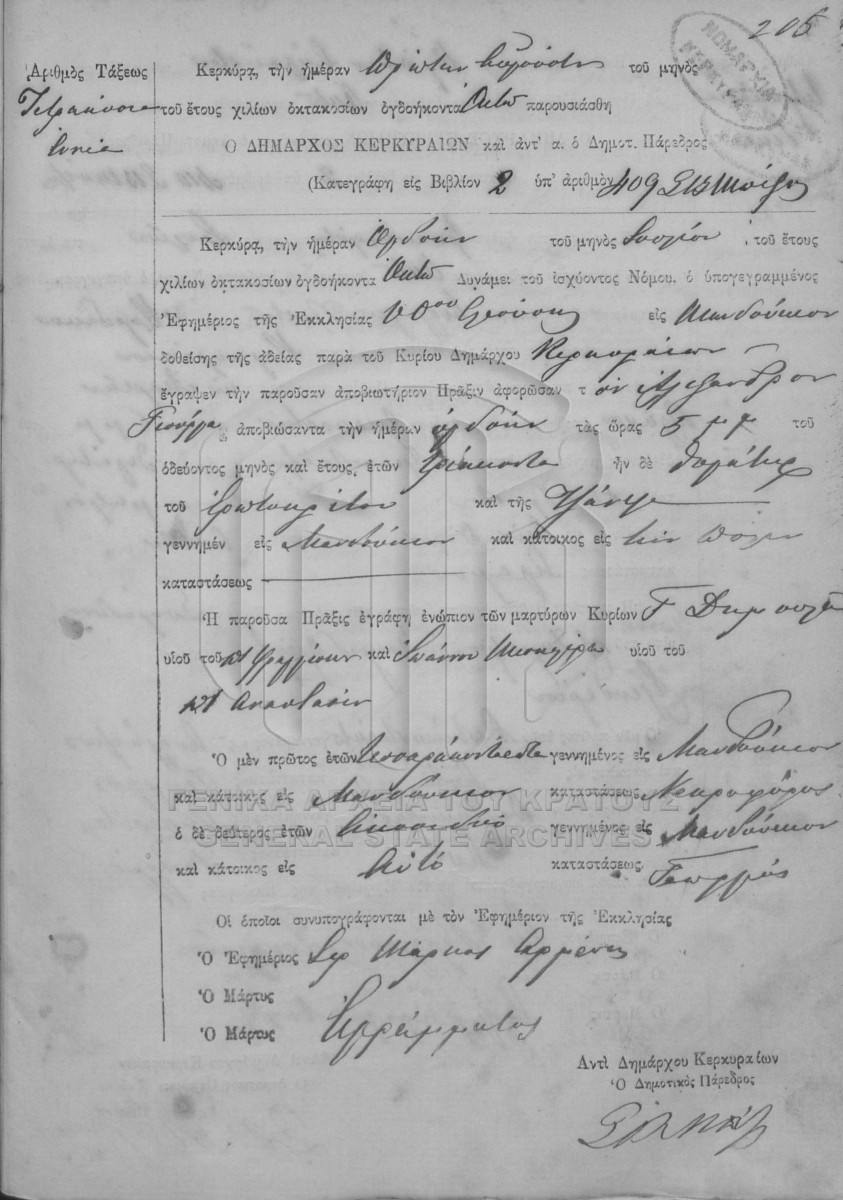 205
ΝΟΜΑΡΧΙΑ ΚΕΡΚΥΡΑΣ
Ἀριθμὸς Τάξεως
Τετρακόσια
ἐννέα
Κερκύρᾳ, τὴν ἡμέραν Πρώτην Αὐγούστου τοῦ μηνὸς
τοῦ ἔτους χιλίων ὀκτακοσίων ὀγδοήκοντα Ὀκτὼ παρουσιάσθη
Ο ΔΗΜΑΡΧΟΣ ΚΕΡΚΥΡΑΙΩΝ καὶ ἀντ' α. ὁ Δημοτ. Πάρεδρος
(Κατεγράφη εἰς Βιβλίον 2 ὑπ' ἀριθμὸν 409
Κερκύρᾳ, τὴν ἡμέραν Ὀγδόην τοῦ μηνὸς Ἰουλίου τοῦ ἔτους
χιλίων ὀκτακοσίων ὀγδοήκοντα Ὀκτὼ Δυνάμει τοῦ ἰσχύοντος Νόμου, ὁ ὑπογεγραμμένος
Ἐφημέριος τῆς Ἐκκλησίας εἰς Μανδούκιον
δοθείσης τῆς ἀδείας παρὰ τοῦ Κυρίου Δημάρχου Κερκυραίων
ἔγραψεν τὴν παροῦσαν ἀποβιωτήριον Πρᾶξιν ἀφορῶσαν τ ὸν Ἀλέξανδρον
ἀποβιώσαντα τὴν ἡμέραν ὀγδόην τὰς ὥρας 5 τοῦ
ὁδεύοντος μηνὸς καὶ ἔτους, ἐτῶν ἦν δὲ θυγάτηρ
τοῦ Ἐρωτοκρίτου καὶ τῆς
γεννημέν εἰς Μανδούκιον καὶ κάτοικος εἰς τὴν πόλιν
καταστάσεως
Ἡ παροῦσα Πρᾶξις ἐγράφη ἐνώπιον τῶν μαρτύρων Κυρίων Γ
υἱοῦ τοῦ καὶ Ἰωάννου υἱοῦ τοῦ
Ἀναστασίου
Ὁ μὲν πρῶτος ἐτῶν γεννημένος εἰς Μανδούκιον
καὶ κάτοικος εἰς Μανδούκιον καταστάσεως Νεκροφόρος
ὁ δὲ δεύτερος ἐτῶν εἰκοσιδύο γεννημένος εἰς Μανδούκιον
καὶ κάτοικος εἰς αὐτό καταστάσεως Γεωργός
ΓΕΝΙΚΑ ΑΡΧΕΙΑ ΤΟΥ ΚΡΑΤΟΥΣ
GENERAL STATE ARCHIVES
Οἱ ὁποῖοι συνυπογράφονται μὲ τὸν Ἐφημέριον τῆς Ἐκκλησίας
Ὁ Ἐφημέριος Ἱερ Μάρκος Ἀρμένης
Ὁ Μάρτυς
Ὁ Μάρτυς Ἀγράμματος
Αντὶ Δημάρχου Κερκυραίων
Ὁ Δημοτικὸς Πάρεδρος